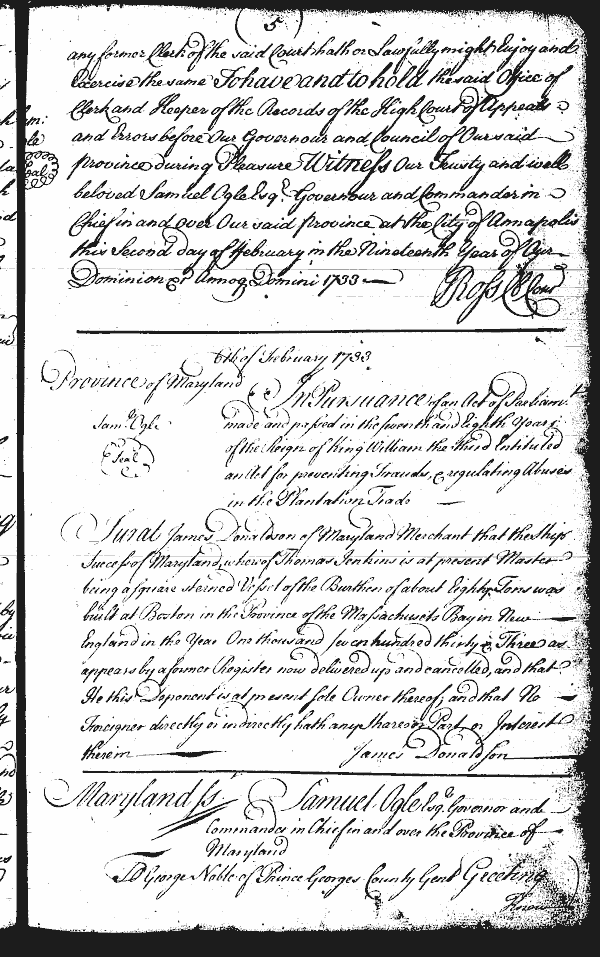 5
any former Clerk of the said Court hath or Lawfully might Enjoy and
Exercise the same To have and to hold the said Office of
Clerk and Keeper of the Records of the High Court of Appeals
and Errors before Our Governour and Council of Our said
province during Pleasure Witness Our Trusty and well
beloved Samuel Ogle Esqr. Governour and Commander in
Chief in and over Our said province at the City of Annapolis
this Second day of February in the Nineteenth Year of Our
Dominion &c Annoq Domini 1733
Ross Cl Con
6th of February 1733
Province of Maryland
In Pursuance of an Act of Parliamt
Sam. Ogle
made and passed in the Seventh and Eighth Years
Seal
of the Reign of King William the Third Entituled
an Act for preventing Frauds, & regulating Abuses
in the Plantation Trade
Jurat James Donaldson of Maryland Merchant that the Ship
Success of Maryland, whereof Thomas Jenkins is at present Master
being a square sterned Vessel of the Burthen of about Eighty Tons was
built at Boston in the Province of the Massachusets Bay in New
England in the Year One thousand seven hundred thirty & Three as
appears by a former Register now delivered up and cancelled, and that
He this Deponent is at present sole Owner thereof, and that No
Foreigner directly or indirectly hath any Share or Part or Interest
therein
James Donaldson
Maryland ss.
Samuel Ogle Esqr. Governor and
Commander in Chief in and over the Province of
Maryland
To George Noble of Prince Georges County Gent Greeting
Know